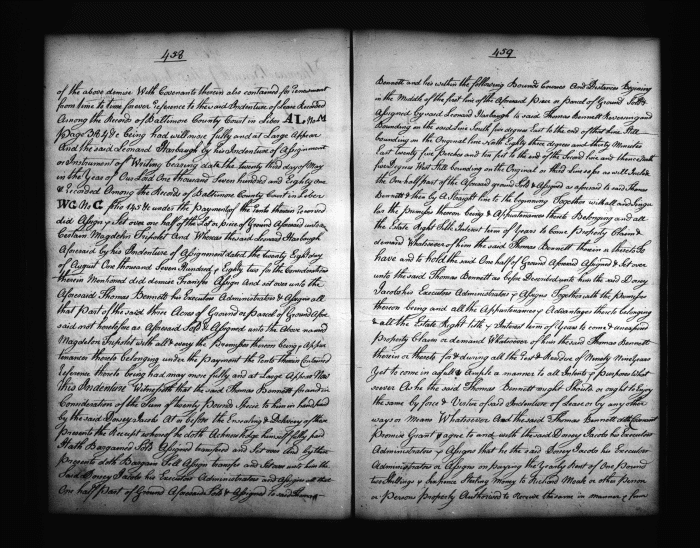 458
of the above demise With Covenants therein also contained for renewment
from time to time forever reference to the said Indenture of Lease Recorded
Among the Records of Baltimore County Court in Liber AL No M
Page 384 &c being had will more fully and at Large Appear
And the said Leonard Harbaugh by his Indenture of Assignment
or Instrument of Writing bearing date the twenty third day of May
in the Year of Our Lord One thousand Seven hundred and Eighty one
& Recorded Among the Records of Baltimore County Court in Liber
WG No G folio 145 &c under the Payment of the Rents therein reserved
did Assign & Set over one half of the Lot or piece of Ground Aforesaid unto a
Certain Magdelen Tripolet And Whereas the said Leonard Harbaugh
Aforesaid by his Indenture of Assignment dated the twenty Eight day
of August One thousand Seven Hundred & Eighty two for the Consideration
therein Mentioned did demise Transfer Assign And set over unto the
Aforesaid Thomas Bennett his Executors Administrators & Assigns all
that Part of the said three Acres of Ground or Parcel of Ground Afore
said not heretofore as Aforesaid Sold & Assigned unto the Above named
Magdalen Tripolet with all & every the Premises thereon being & Appur
tenances thereto belonging under the Payment the Rents therein Contained
reference thereto being had may more fully and at Large Appear Now
this Indenture Witnesseth that the said Thomas Bennett for and in
Consideration of the Sum of twenty Pound Specie to him in hand paid
by the said Dorsey Jacob At or before the Ensealing & Delivery of these
Presents the Receipt whereof he doth Acknowledge himself fully paid
Hath Bargained Sold Aligned transfered and Set over And by these
Presents doth Bargain Sell Assign transfer and set over unto him the
Said Dorsey Jacob his Executors Administrators and Assigns all that
One half Part of Ground Aforesaid Sold & Assigned to said Thomas
459
Bennett and lies within the following Bounds Courses And Distances Beginning
in the Middle of the first line of the Aforesaid Piece or Parcel of Ground Sold &
Assigned by said Leonard Harbaugh to said Thomas Bennett Reversing and
Bounding on the said Line South five degrees East to the end of that line Still
Bounding on the Original line North Eighty three degrees and thirty Minutes
East twenty five Perches and ten feet to the end of the Second line and then North
five Degrees West Still Bounding on the Original or third Line so far as will Include
the One half part of the Aforesaid ground Sold & Assigned as aforesaid to said Thomas
Bennett & then by A Straight line to the beginning Together with all and Singu
lar the Premises thereon being & Appurtenances thereto Belonging and all
the Estate Right Title Interest term of Years to Come Property Claim &
demand Whatsoever of him the said Thomas Bennett therein or thereto To
have and to hold the said One half of Ground Aforesaid Assigned & Set over
unto the said Thomas Bennett as before Described unto him the said Dorsey
Jacob his Executors Administrators & Assigns Together with the Premises
thereon being and all the Appurtenances & Advantages thereto belonging
& all the Estate Right Title & Interest term of Years to come & unexpired
Property Claim or demand Whatsoever of him the said Thomas Bennett
therein or thereto for & during all the Rest & Residue of Ninety Nine Years
Yet to come in as full & Ample a manner to all Intents & Purposes What
soever As he the said Thomas Bennett might Should or ought to Enjoy
the same by force & Vertue of said Indenture of Lease or by any other
ways or Means Whatsoever And the said Thomas Bennett doth Covenant
Promise Grant & agree to and with the said Dorsey Jacob his Executors
Administrators & Assigns that he the said Dorsey Jacob his Executors
Administrators or Assigns on paying the Yearly Rent of One Pound
two Shillings & Six pence Sterling Money to Richard Moale or other Person
or Persons Properly Authorised to Receive the same in manner & form